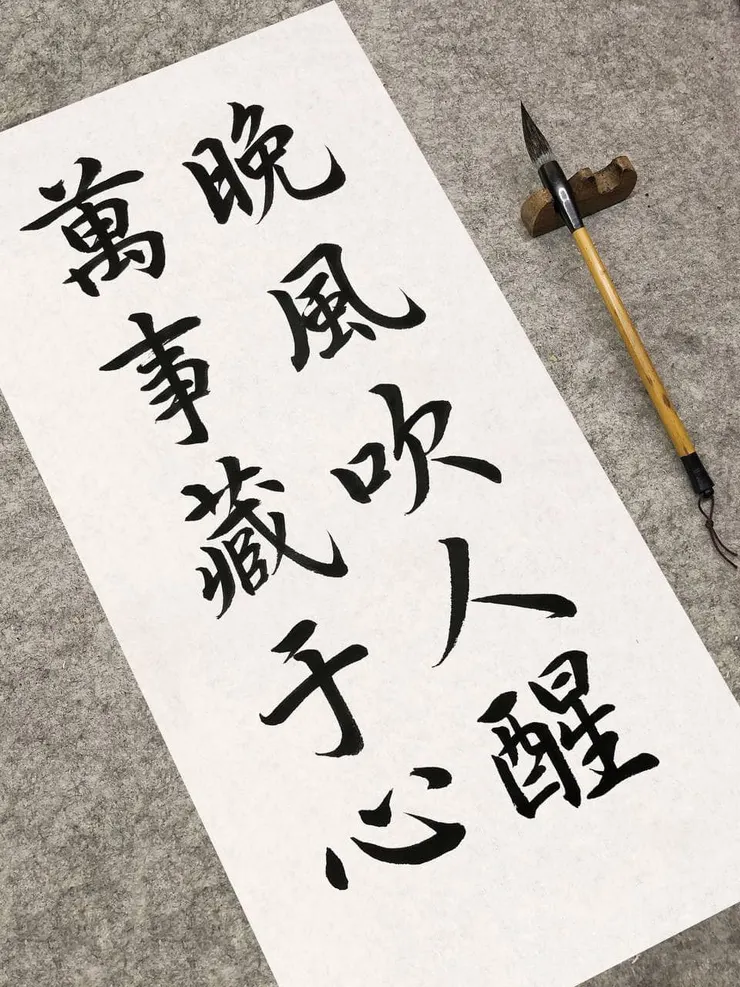 晚風吹人醒
萬事藏于心